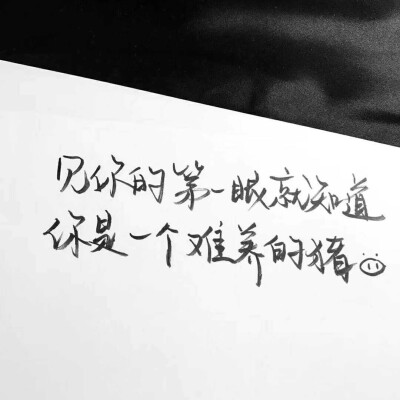 见你的第一眼就知道
你是一个难养的猪